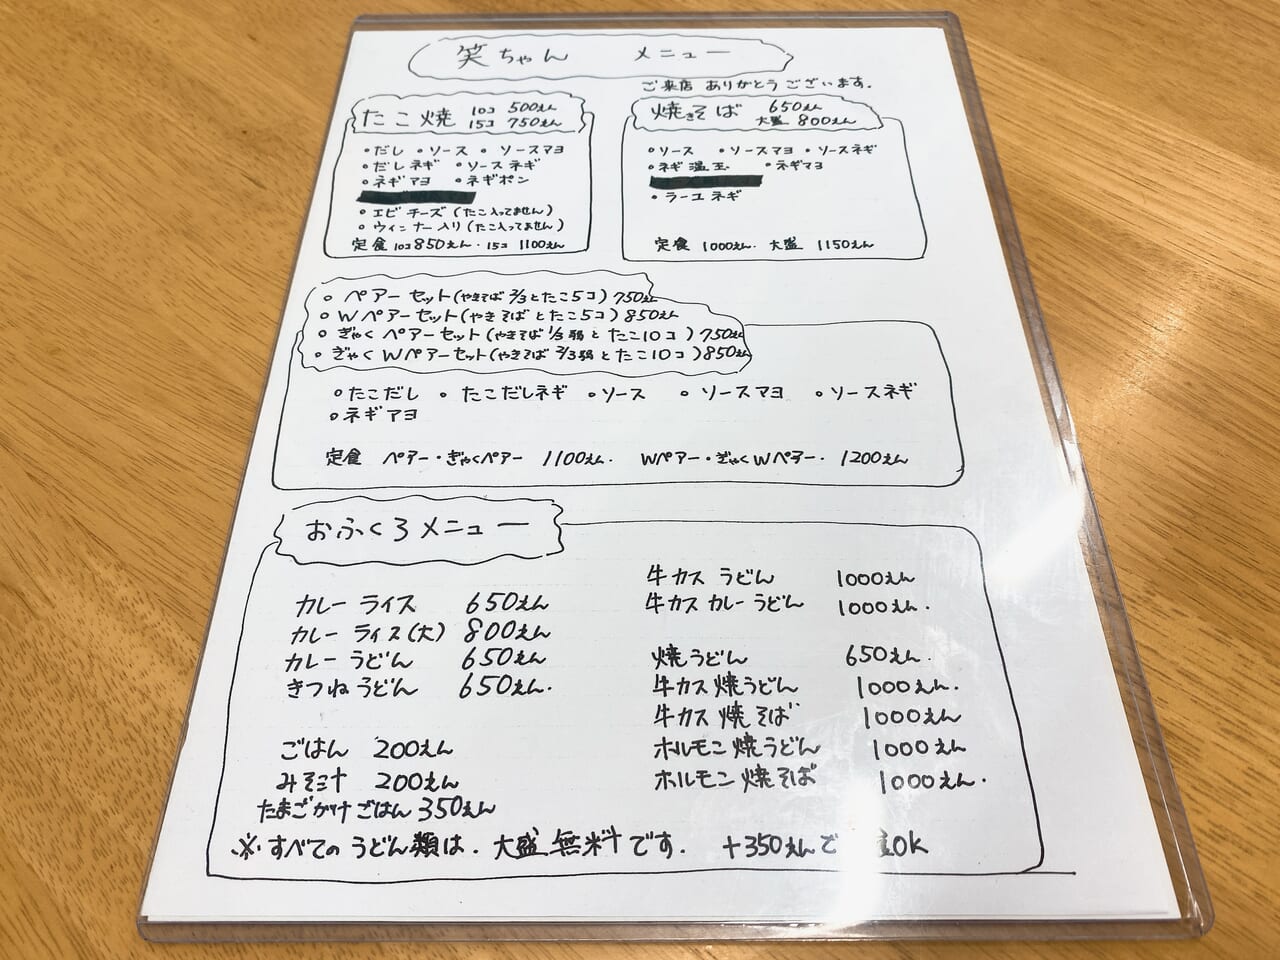 笑ちゃん メニュー
ご来店 ありがとうございます.
たこ焼 10コ 500えん
15コ 750えん
○だし ○ソース ○ソースマヨ
○だしネギ ○ソースネギ
○ネギマヨ ○ネギポン
○エビチーズ(たこ入ってません)
○ウィンナー入り(たこ入ってません)
定食 10コ 850えん. 15コ 1100えん
焼きそば 650えん
大盛 800えん
○ソース ○ソースマヨ ○ソースネギ
○ネギ温玉 ○ネギマヨ
○ラーユネギ
定食 1000えん. 大盛 1150えん
○ペアーセット(やきそば 2/3とたこ5コ)750えん
○Wペアーセット(やきそばとたこ5コ)850えん
○ぎゃくペアーセット(やきそば 1/3弱とたこ10コ)750えん
○ぎゃくWペアーセット(やきそば 2/3弱とたこ10コ)850えん
○たこだし ○たこだしネギ ○ソース ○ソースマヨ ○ソースネギ
○ネギマヨ
定食 ペアー・ぎゃくペアー 1100えん. Wペアー・ぎゃくWペアー. 1200えん
おふくろメニュー
カレーライス 650えん
カレーライス(大) 800えん
カレーうどん 650えん
きつねうどん 650えん.
ごはん 200えん
みそ汁 200えん
たまごかけごはん 350えん
牛カスうどん 1000えん
牛カスカレーうどん 1000えん.
焼うどん 650えん.
牛カス焼うどん 1000えん.
牛カス焼そば 1000えん
ホルモン焼うどん 1000えん
ホルモン焼そば 1000えん.
※すべてのうどん類は.大盛無料です. +350えんで OK